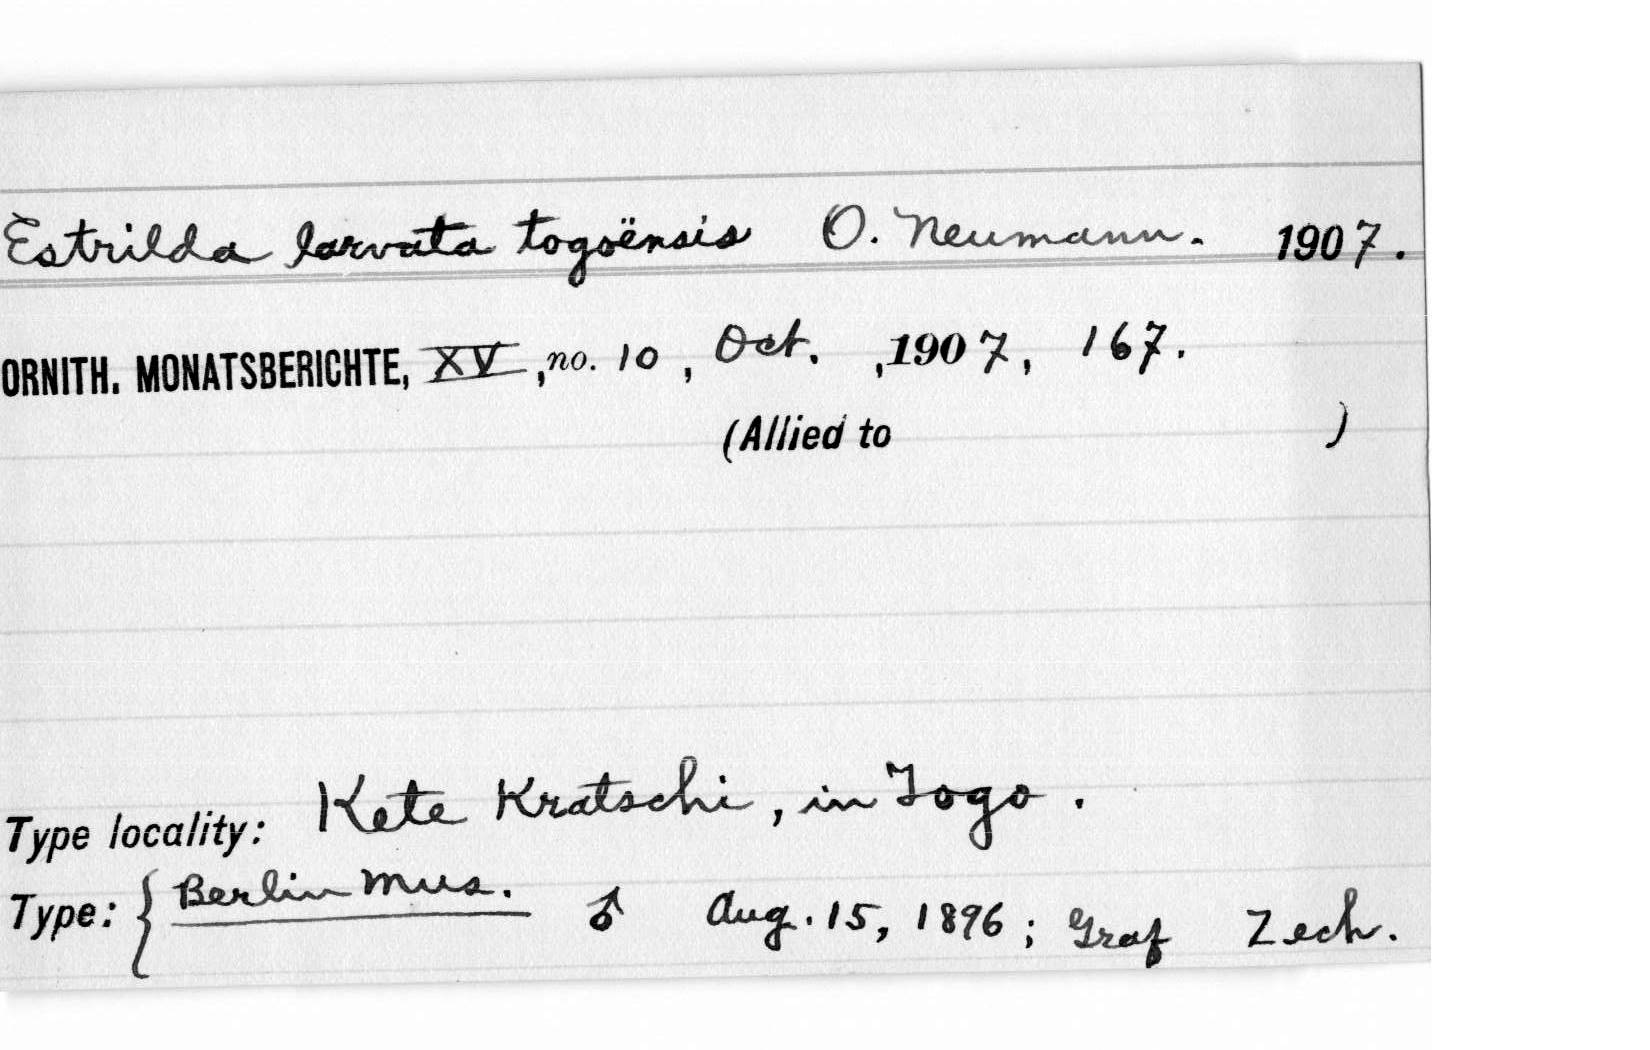 Estrilda larvata togoënsis O. Neumann. 1907.
ORNITH. MONATSBERICHTE, XV, no. 10, Oct. ,1907, 167.
(Allied to )
Type locality: Kete Kratschi, in Togo.
Type: { Berlin Mus. ♂ Aug. 15, 1896; Graf Zech.